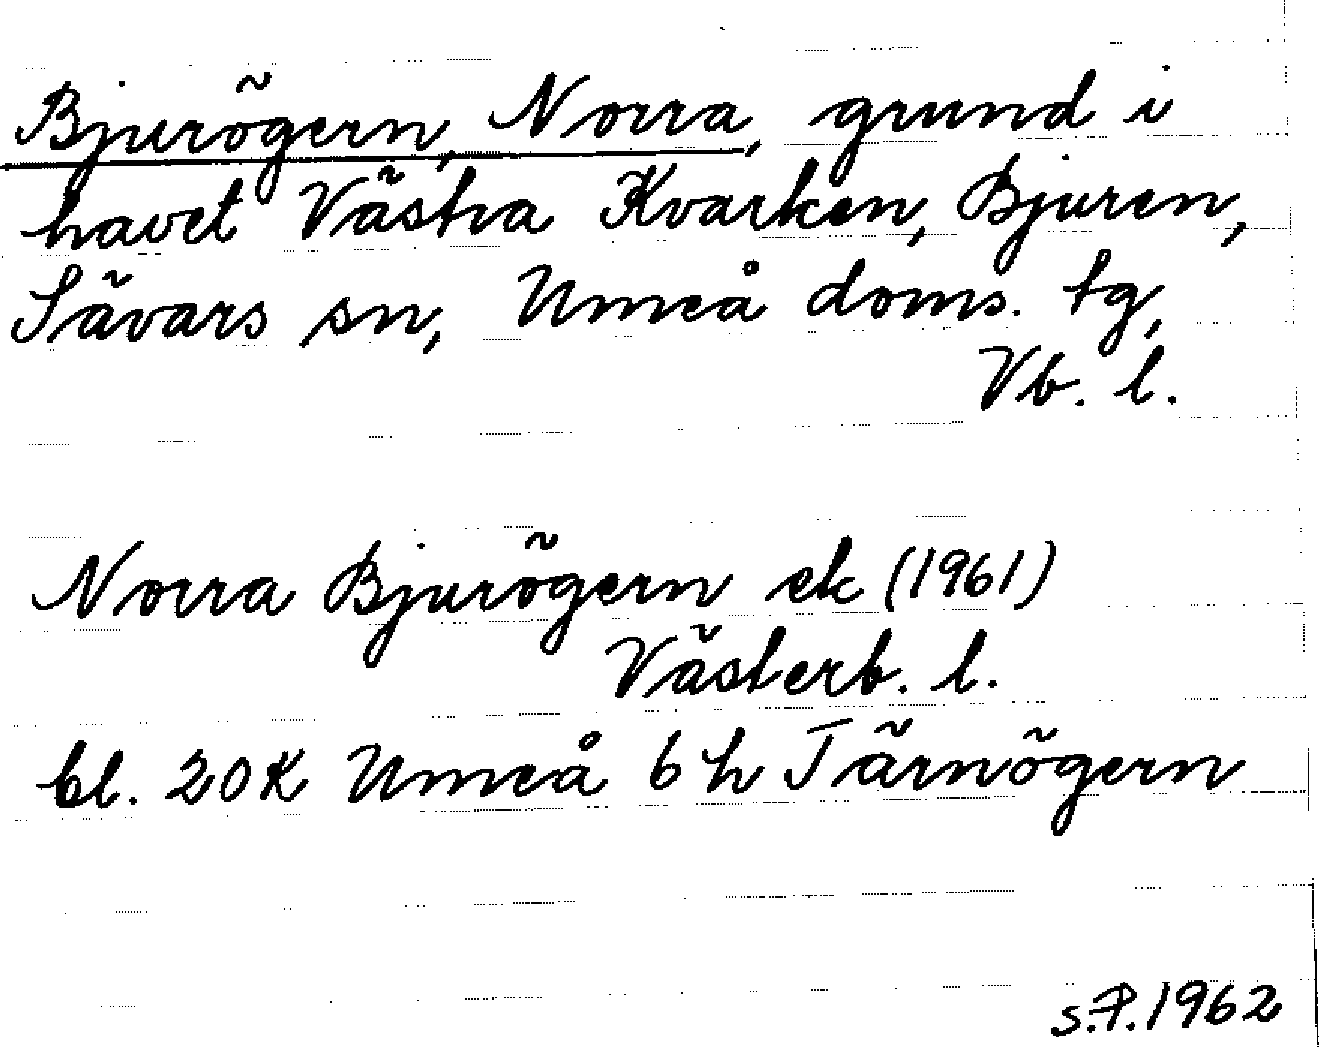 Bjurögern, Norra, grund i
havet Västra Kvarken, Bjuren,
Sävars sn, Umeå doms. tg,
Vb. l.
Norra Bjurögern ek (1961)
Västerb. l.
bl. 20K Umeå 6h Tärnögern
S.P. 1962